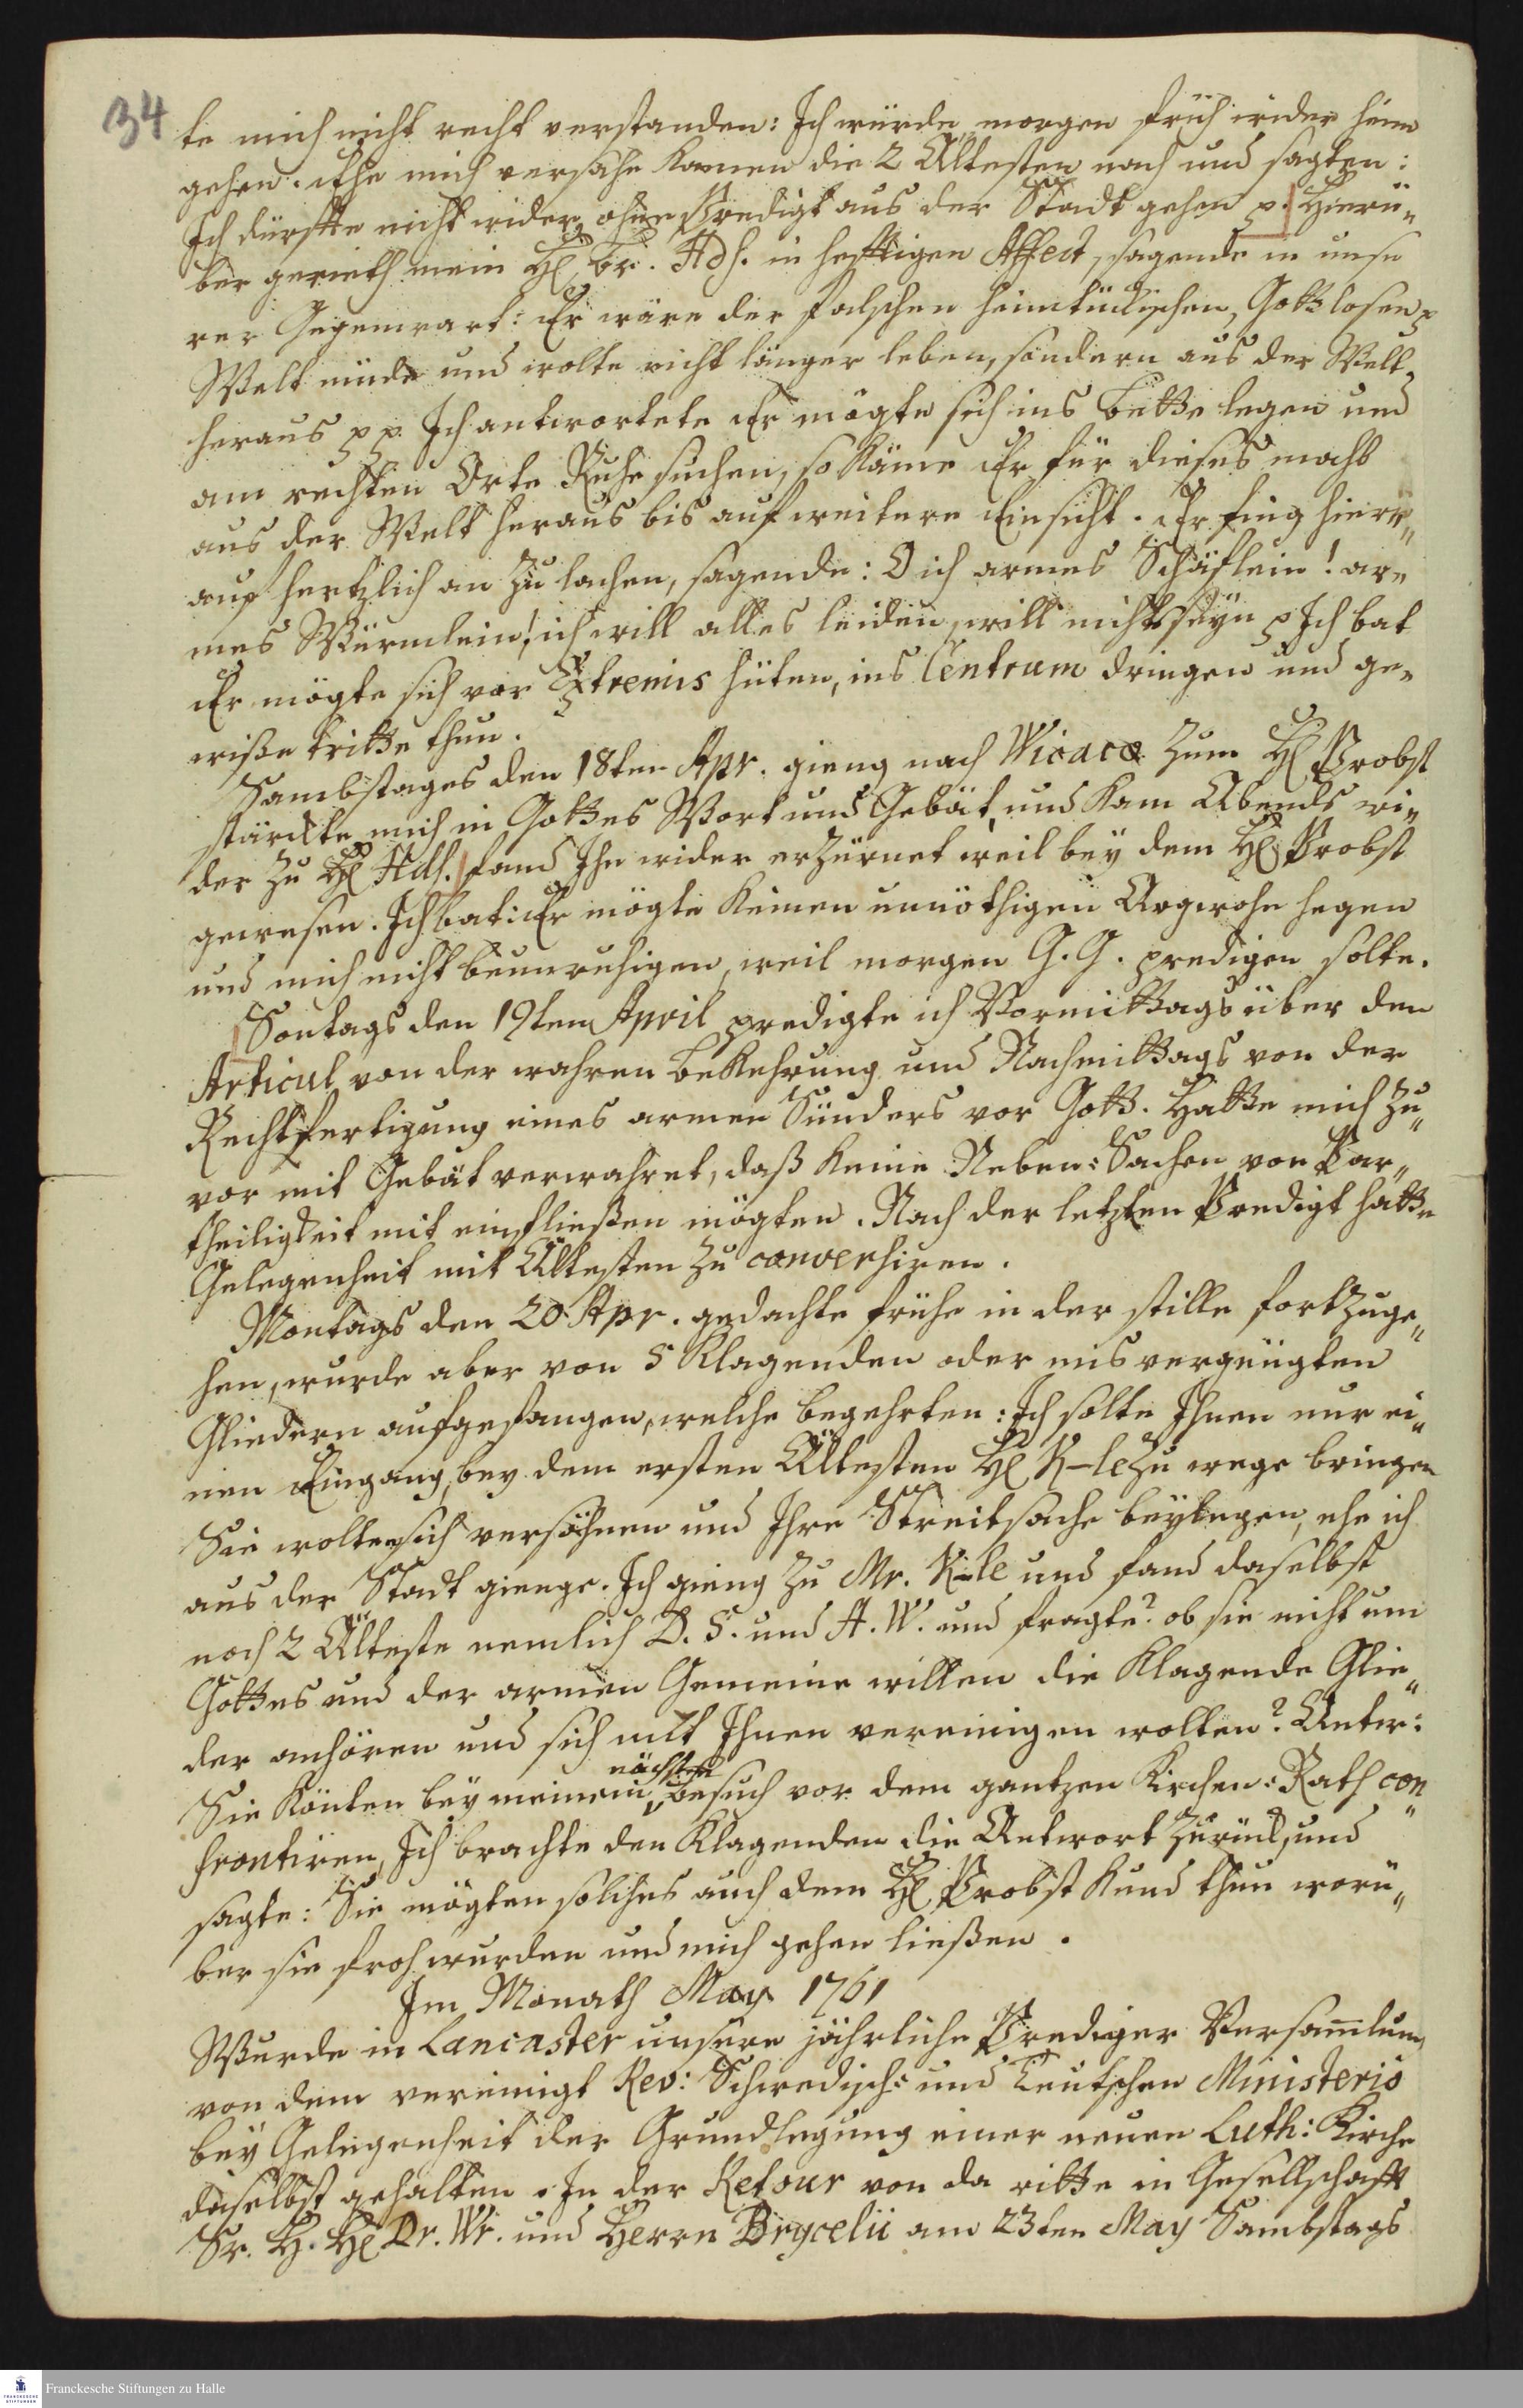 34
te mich nicht recht verstanden: Ich würde morgen früh wider heim
gehen. Ehe mich versahe kamen die 2 Ältesten nach und sagten:
Ich dürffte nicht wider ohne Predigt aus der Stadt gehen p. Hierü„
ber gerieth mein H br. Hdsh. in hefftigen Affect, sagende in unse
rer Gegenwart: Er wäre der falschen heimtückischen, Gottlosen p
Welt müde und wolte nicht länger leben, sondern aus der Welt
heraus pp. Ich antwortete Er mögte sich ins Bette legen und
am rechten Orte Ruhe suchen, so käme Er für dieses mahl
aus der Welt heraus bis auf weitere Einsicht. Er fing hier„
auf hertzlich an zu lachen, sagende: O ich armes Schäflein! ar„
mes Würmlein! ich will alles leiden, will nichts seyn p Ich bat
Er mögte sich vor Extremis hüten, ins Centrum dringen und ge„
wiße tritte thun.
Sambstages den 18ten Apr. gieng nach Wicaco zum H Probst
stärckte mich in Gottes Wort und Gebät, und kam Abends wi„
der zu H Hdsh. fand Ihn wider erzürnet weil bey dem H Probst
gewesen. Ich bat: Er mögte keinen unnöthigen Argwohn hegen
und mich nicht beunruhigen, weil morgen G. G. predigen solte.
Sontags den 19ten April predigte ich Vormittags über den
Articul von der wahren Bekehrung und Nachmittags von der
Rechtfertigung eines armen Sünders vor Gott. Hatte mich zu„
vor mit Gebät verwahret, daß keine Neben-Sachen von Par„
theiligkeit mit einfließen mögten. Nach der letzten Predigt hatte
Gelegenheit mit Ältesten zu conversiren.
Montags den 20 Apr. gedachte frühe in der stille fortzuge„
hen, wurde aber von 5 Klagenden oder misvergnügten
Gliedern aufgefangen, welche begehrten: Ich solte Ihnen nur ei„
nen Eingang bey dem ersten Ältesten H K-le zu wege bringen
Sie wolten sich versöhnen und Ihre Streitsache beylegen, ehe ich
aus der Stadt gienge. Ich gieng zu Mr. K-le und fand daselbst
noch 2 Älteste nemlich D. S. und A. W. und fragte? ob sie nicht um
Gottes und der armen Gemeine willen die Klagende Glie„
der anhören und sich mit Ihnen vereinigen wolten? Antw:
Sie könten bey meinem nächsten Besuch vor dem gantzen Kirchen-Rath con„
frontiren, Ich brachte den Klagenden die Antwort zurück, und
sagte: Sie mögten solches auch dem H Probst kund thun worü„
ber sie froh wurden und mich gehen ließen.
Im Monath May 1761
Wurde in Lancaster unsere jährliche Prediger Versammlung
von dem vereinigt Rev: Schwedisch- und Teutschen Ministerio
bey Gelegenheit der Grundlegung einer neuen Luth: Kirche
daselbst gehalten. In der Retour von da ritte in Gesellschafft
Sr. H. H Dr. Wr. und Herrn Brycelii am 23ten May Sambstags
FRANCKESCHE STIFTUNGEN
Franckesche Stiftungen zu Halle